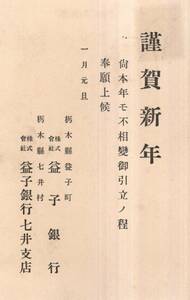 謹賀新年
尙本年モ不相變御引立ノ程
奉願上候
一月元旦
栃木縣益子町
株式會社 益子銀行
栃木縣七井村
株式會社 益子銀行七井支店